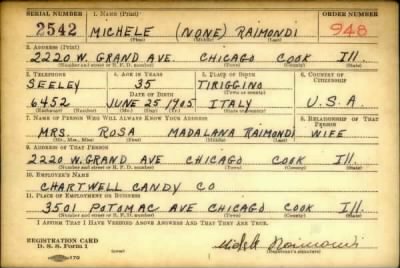 SERIAL NUMBER 1. NAME (Print) ORDER NUMBER
2542 MICHELE (NONE) RAIMONDI 948
(First) (Middle) (Last)
2. ADDRESS (Print)
2220 W. GRAND AVE. CHICAGO COOK Ill.
(Number and street or R. F. D. number) (Town) (County) (State)
3. TELEPHONE 4. AGE IN YEARS 5. PLACE OF BIRTH 6. COUNTRY OF CITIZENSHIP
SEELEY 35 TIRIGGINO
DATE OF BIRTH (Town or county)
6452 JUNE 25 1905 ITALY U.S.A
(Exchange) (Number) (Mo.) (Day) (Yr.) (State or country)
7. NAME OF PERSON WHO WILL ALWAYS KNOW YOUR ADDRESS 8. RELATIONSHIP OF THAT PERSON
MRS. ROSA MADALANA RAIMONDI WIFE
(Mr., Mrs., Miss) (First) (Middle) (Last)
9. ADDRESS OF THAT PERSON
2220 W. GRAND AVE CHICAGO COOK Ill.
(Number and street or R. F. D. number) (Town) (County) (State)
10. EMPLOYER'S NAME
CHARTWELL CANDY CO
11. PLACE OF EMPLOYMENT OR BUSINESS
3501 POTOMAC AVE CHICAGO COOK Ill.
(Number and street or R. F. D. number) (Town) (County) (State)
I AFFIRM THAT I HAVE VERIFIED ABOVE ANSWERS AND THAT THEY ARE TRUE.
REGISTRATION CARD
D. S. S. Form 1 Michele Raimondi
(Registrant's signature)